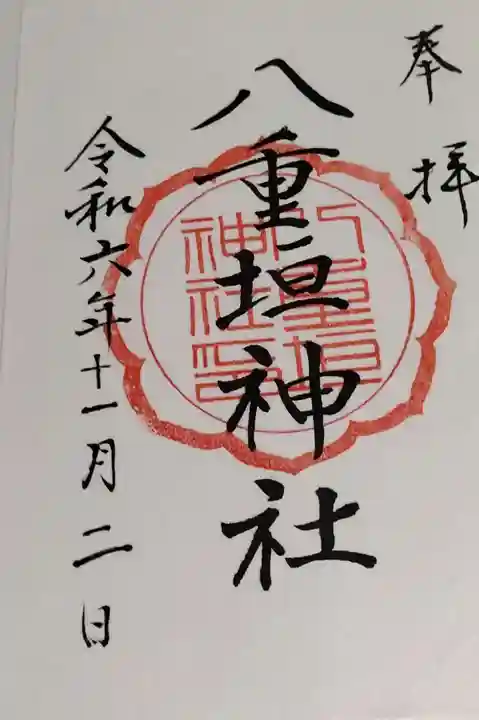 奉拝
八重垣神社
八重垣
神社印
令和六年十一月二日